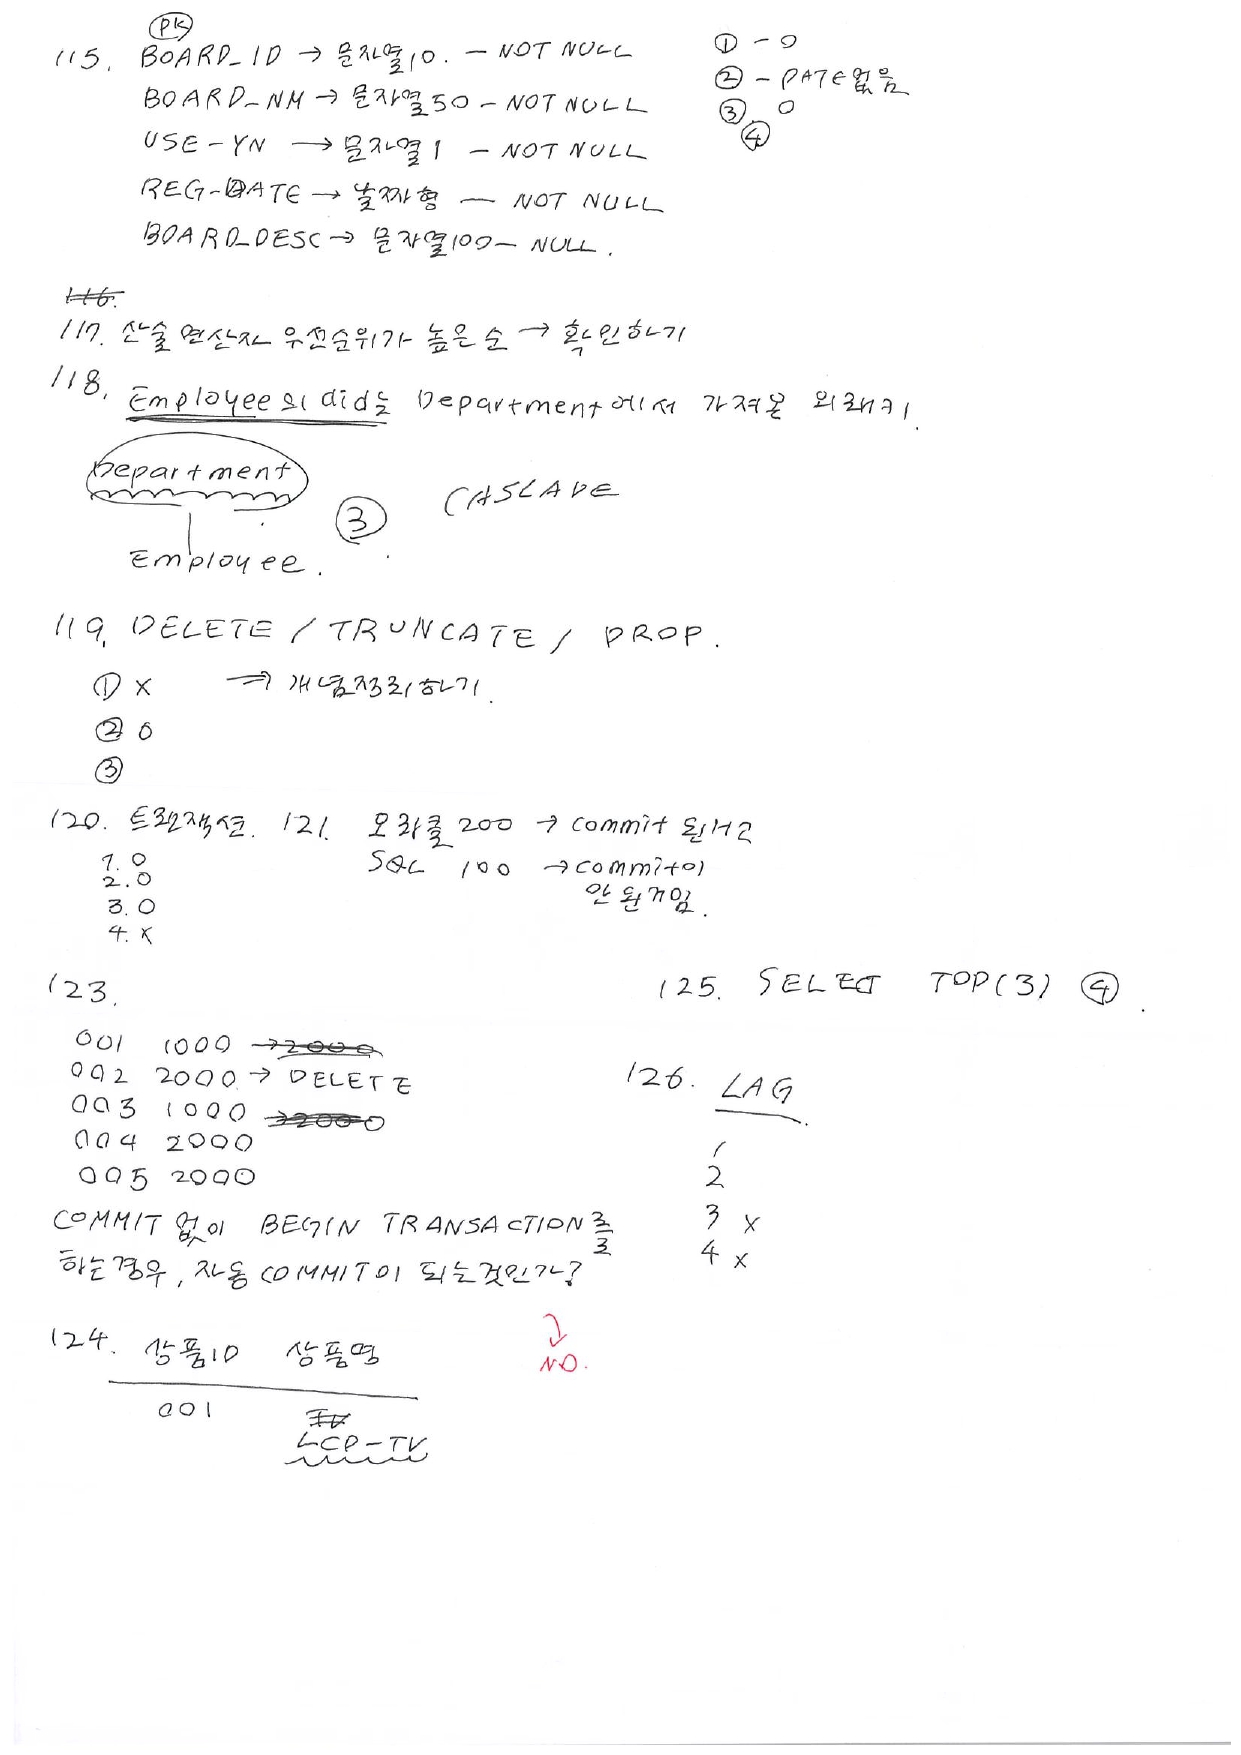 PK
115. BOARD_ID → 문자열10. - NOT NULL
BOARD_NM → 문자열50 - NOT NULL
USE-YN → 문자열1 - NOT NULL
REG-DATE → 날짜형 - NOT NULL
BOARD_DESC → 문자열100 - NULL.
① - 0
② - DATE없음
③ 0
④
116.
117. 산술 연산자 우선순위가 높은 순 → 확인하기
118. Employee의 did는 Department에서 가져온 외래키.
Department
Employee.
③ CASCADE
119. DELETE / TRUNCATE / DROP.
① X ⇒ 개념정리하기.
② 0
③
120. 트랜잭션.
1. 0
2. 0
3. 0
4. X
121. 오라클 200 → commit 된거고
SQL 100 → commit이
안된거임.
123.
001 1000 → 2000
002 2000 → DELETE
003 1000 → 2000
004 2000
005 2000
COMMIT 없이 BEGIN TRANSACTION를
하는경우, 자동 COMMIT이 되는것인가?
NO.
124. 상품ID 상품명
001
TV
LCD-TV
125. SELECT TOP(3) ④.
126. LAG
1
2
3 X
4 X